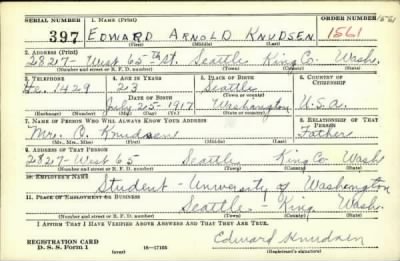 SERIAL NUMBER 1. NAME (Print) ORDER NUMBER
397 EDWARD ARNOLD KNUDSEN 1561
(First) (Middle) (Last)
2. ADDRESS (Print)
2827- West 65th St. Seattle King Co. Wash.
(Number and street or R. F. D. number) (Town) (County) (State)
3. TELEPHONE 4. AGE IN YEARS 5. PLACE OF BIRTH 6. COUNTRY OF CITIZENSHIP
He. 1429 23 Seattle
(Town or county)
DATE OF BIRTH
July 25-1917 Washington U.S.a.
(Exchange) (Number) (Mo.) (Day) (Yr.) (State or country)
7. NAME OF PERSON WHO WILL ALWAYS KNOW YOUR ADDRESS 8. RELATIONSHIP OF THAT PERSON
Mr. O. Knudsen Father
(Mr., Mrs., Miss) (First) (Middle) (Last)
9. ADDRESS OF THAT PERSON
2827-West 65 Seattle King Co Wash
(Number and street or R. F. D. number) (Town) (County) (State)
10. EMPLOYER'S NAME
Student - University of Washington
11. PLACE OF EMPLOYMENT OR BUSINESS
Seattle King Wash.
(Number and street or R. F. D. number) (Town) (County) (State)
I AFFIRM THAT I HAVE VERIFIED ABOVE ANSWERS AND THAT THEY ARE TRUE.
REGISTRATION CARD
D. S. S. Form 1 (over) 16-17105 Edward Knudsen
(Registrant's signature)